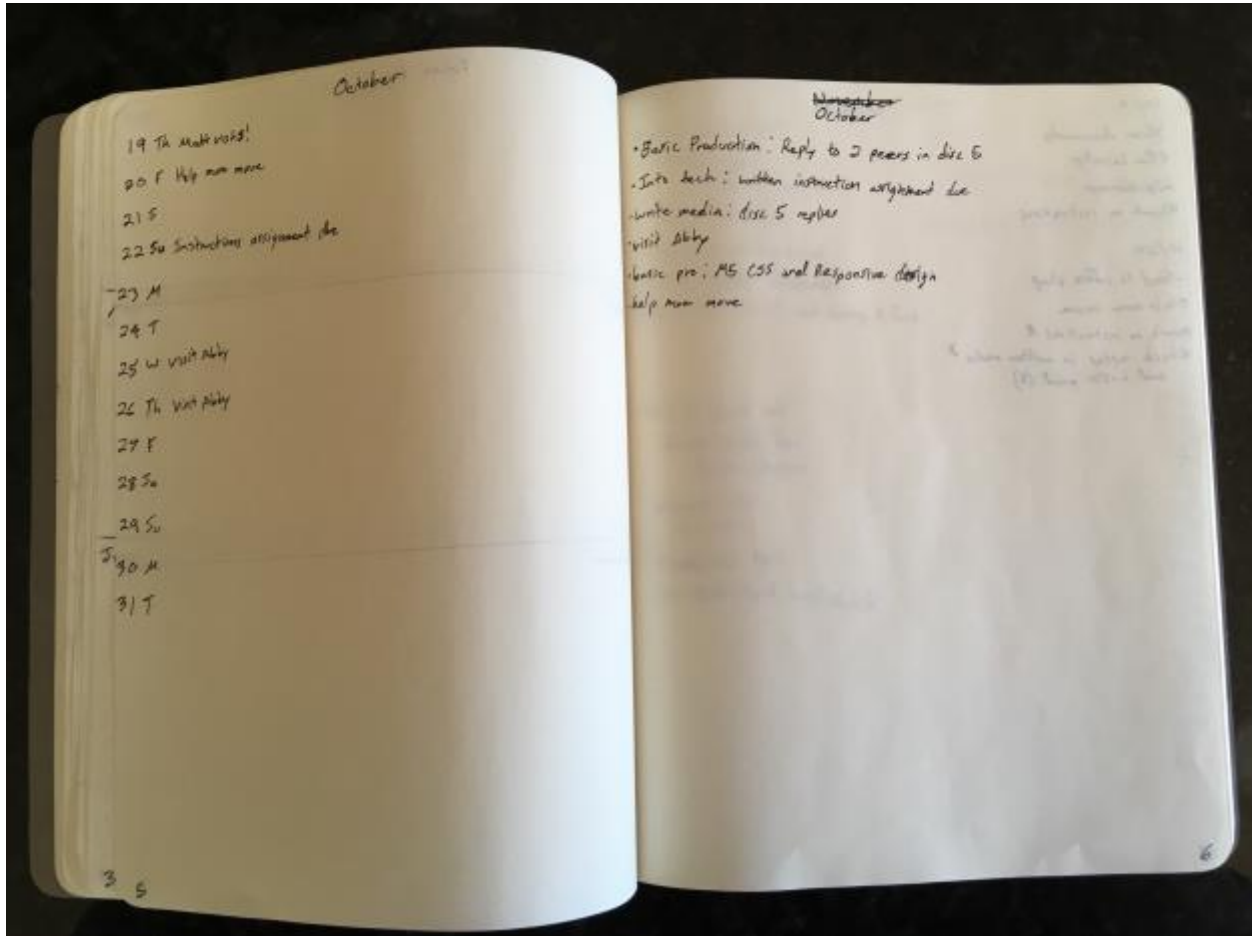 October
19 Th Matt visits!
20 F Help mom move
21 S
22 Su Instructions assignment due
23 M
24 T
25 W visit Abby
26 Th Visit Abby
27 F
28 Sa
29 Su
30 M
31 T
3
5
November
October
- Basic Production: Reply to 2 peers in disc 5
- Into tech: written instruction assignment due
- write media: disc 5 replies
- visit Abby
- basic pro: M5 CSS and Responsive design
- help mom move
6